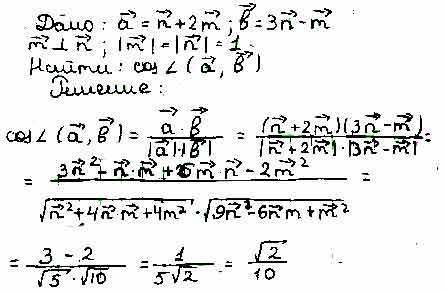 Дано: a⃗ = n⃗ + 2m⃗ ; b⃗ = 3n⃗ - m⃗
m⃗ ⊥ n⃗ ; |m⃗| = |n⃗| = 1.
Найти: cos∠(a⃗, b⃗)
Решение:
cos∠(a⃗, b⃗) = (a⃗ · b⃗)/(|a⃗|·|b⃗|) = ((n⃗ + 2m⃗)(3n⃗ - m⃗))/(|n⃗ + 2m⃗|·|3n⃗ - m⃗|) =
= (3n⃗² - n⃗·m⃗ + 6m⃗·n⃗ - 2m⃗²)/(√(n⃗² + 4n⃗m⃗ + 4m²) · √(9n⃗² - 6n⃗m + m⃗²)) =
= (3 - 2)/(√5 · √10) = 1/(5√2) = √2/10